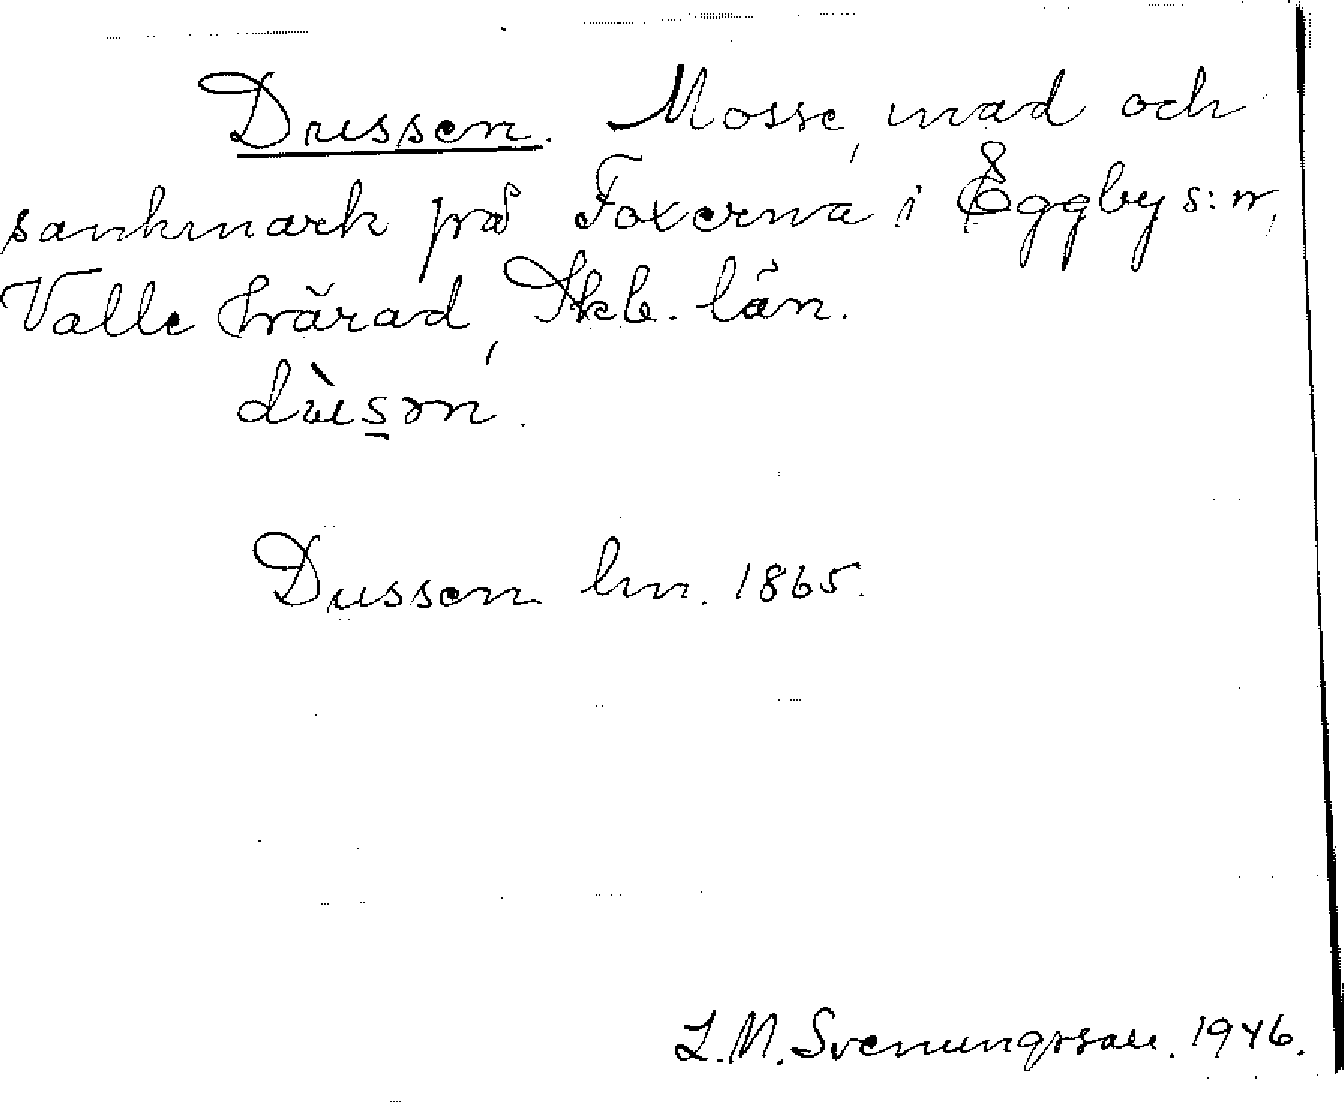 Dussen. Mosse, mad och
sankmark på Foxerna i Eggby s:n,
Valle härad, Skb. län.
dùsən.
Dussen lm. 1865.
L.M. Svenungsson. 1946.